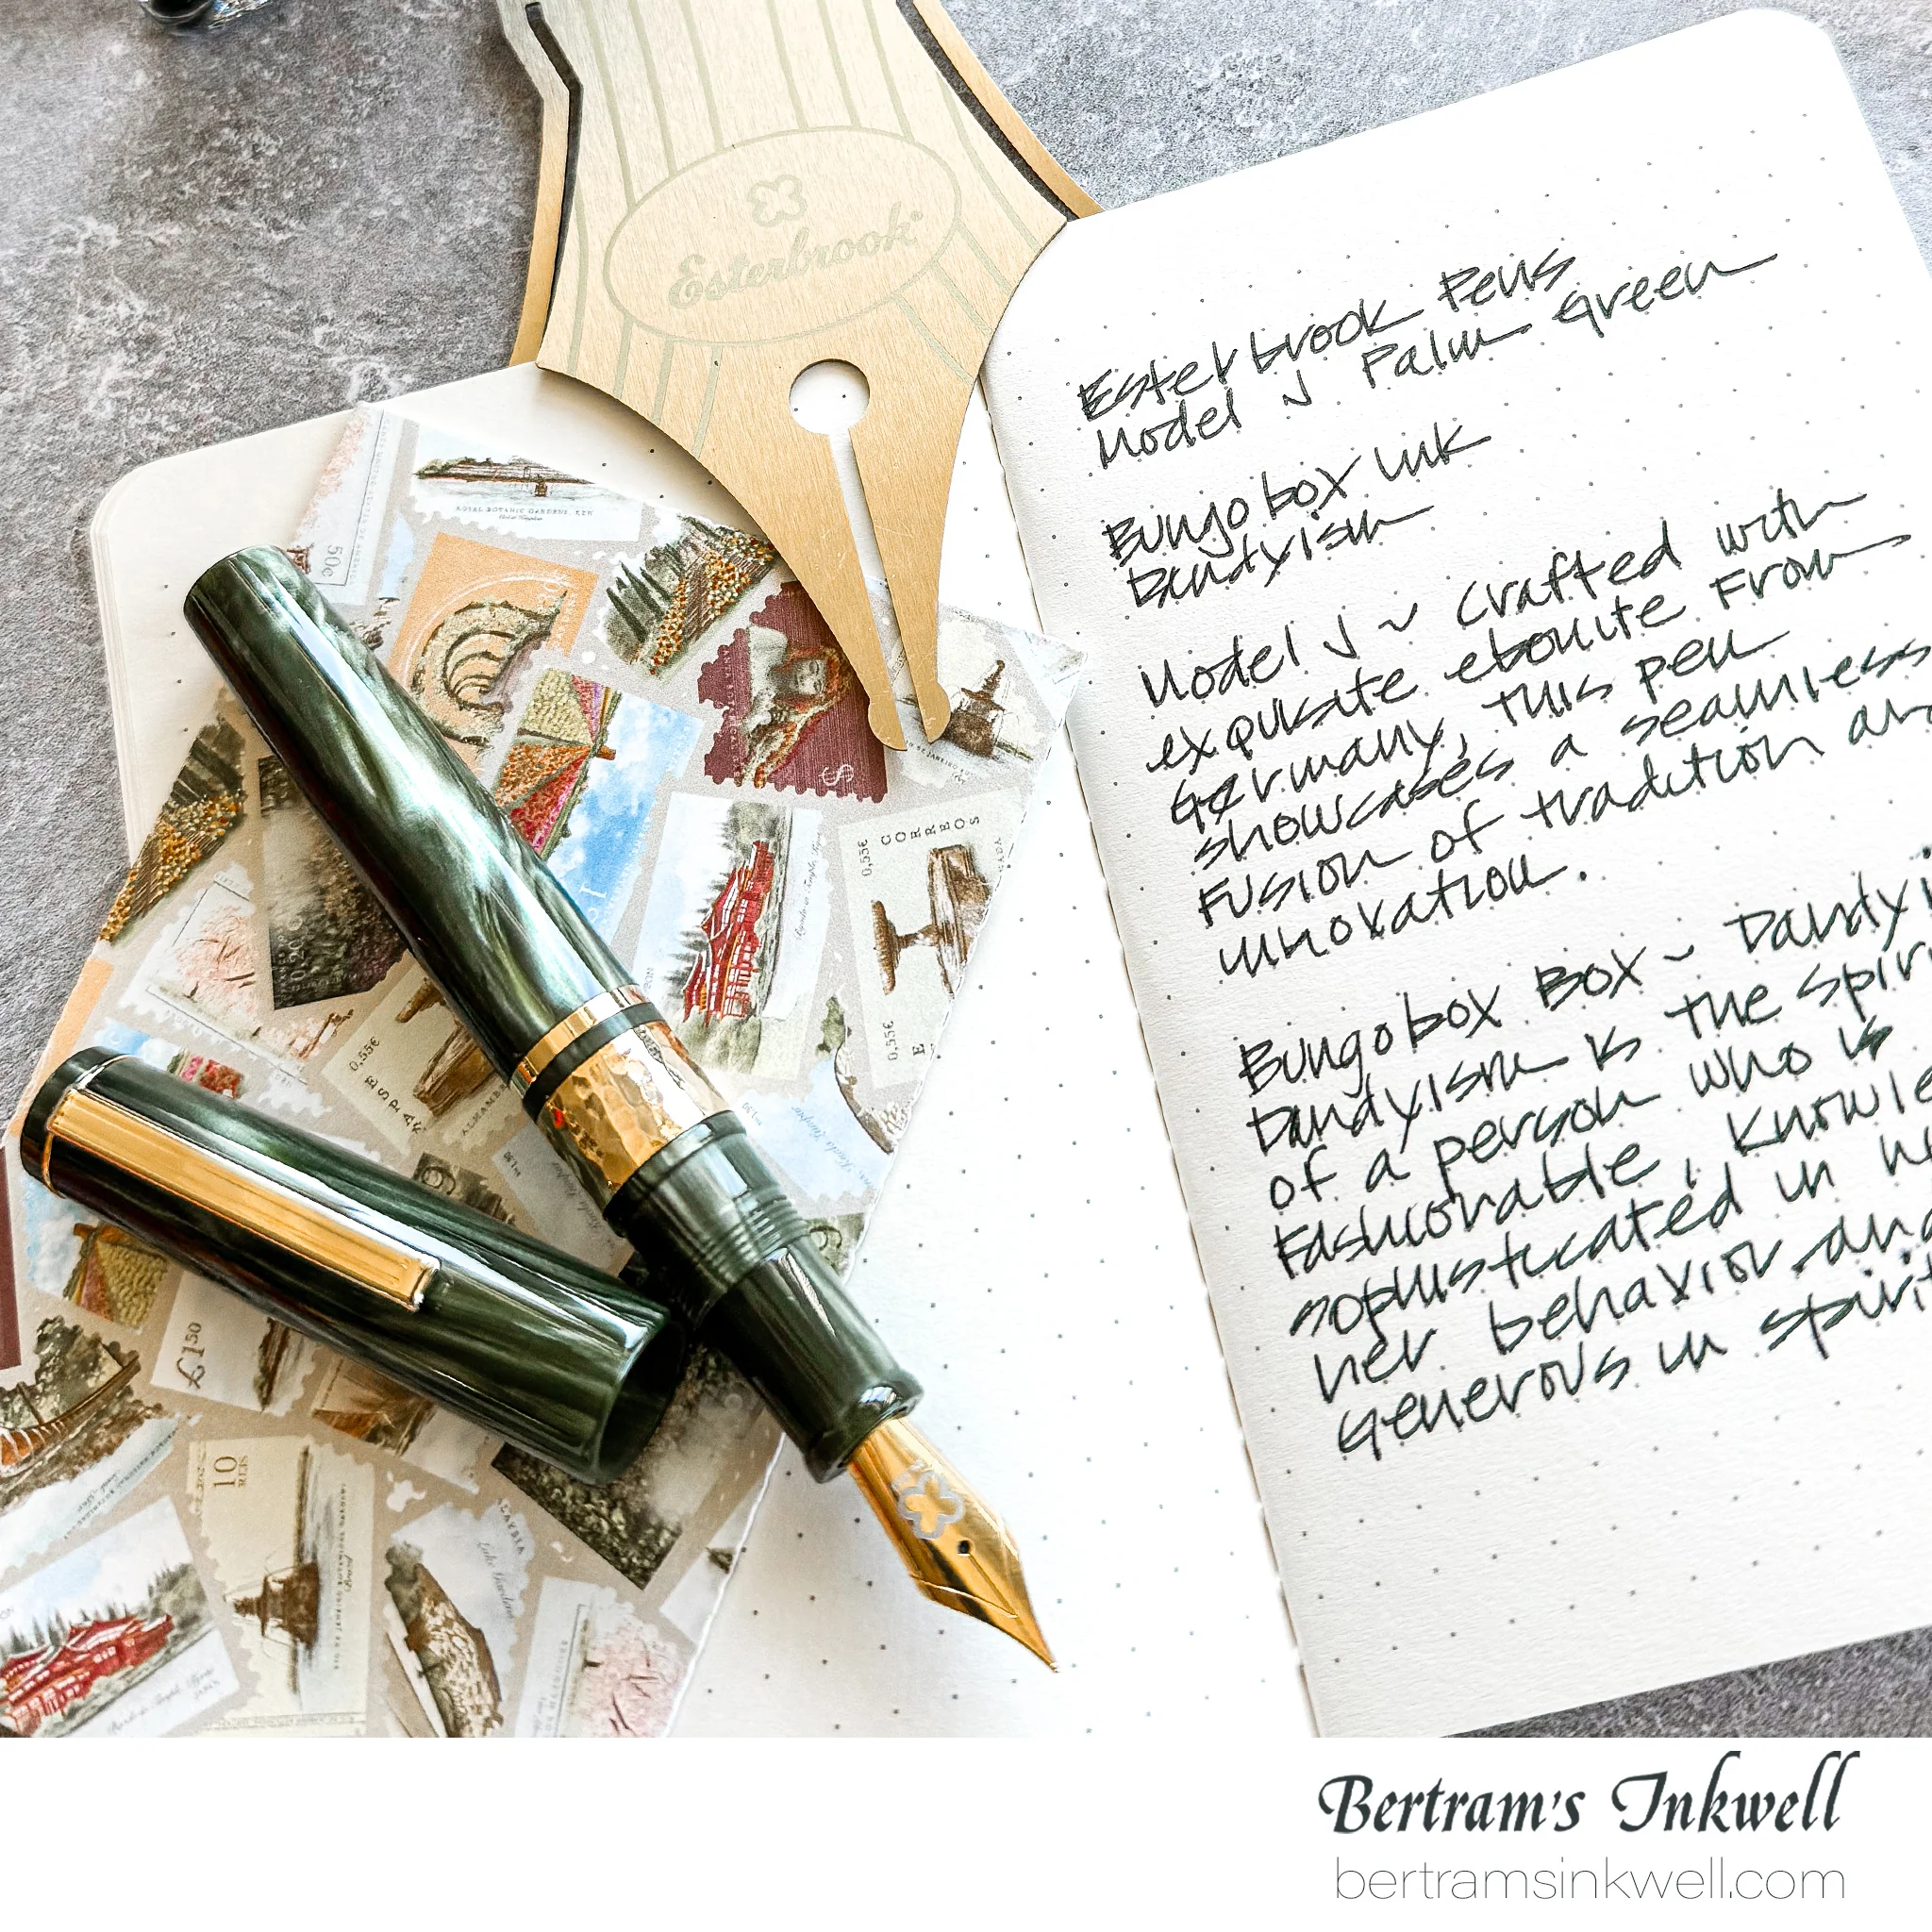 Esterbrook
Esterbrook Pens
Model J Palm Green
Bungobox ink
Dandyism
Model J ~ Crafted with
exquisite ebonite from
Germany, this pen
showcases a seamless
fusion of tradition an
innovation.
Bungobox Box ~ Dandyi
Dandyism is the spiri
of a person who is
fashionable, knowle
sophisticated in hi
her behavior and
generous in spirit
ROYAL BOTANIC GARDENS, KEW
50c
CORREOS
0,55€
0,55€
0,55€
ESPAÑ
£1.50
10
REIS
Bertram's Inkwell
bertramsinkwell.com